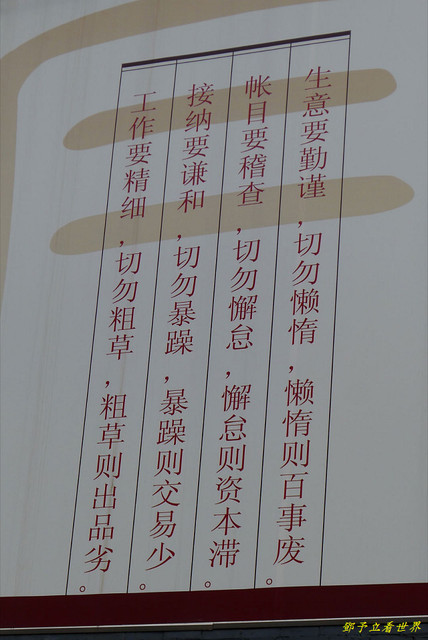 生意要勤谨,切勿懒惰,懒惰则百事废。
帐目要稽查,切勿懈怠,懈怠则资本滞。
接纳要谦和,切勿暴躁,暴躁则交易少。
工作要精细,切勿粗草,粗草则出品劣。
鄧予立看世界